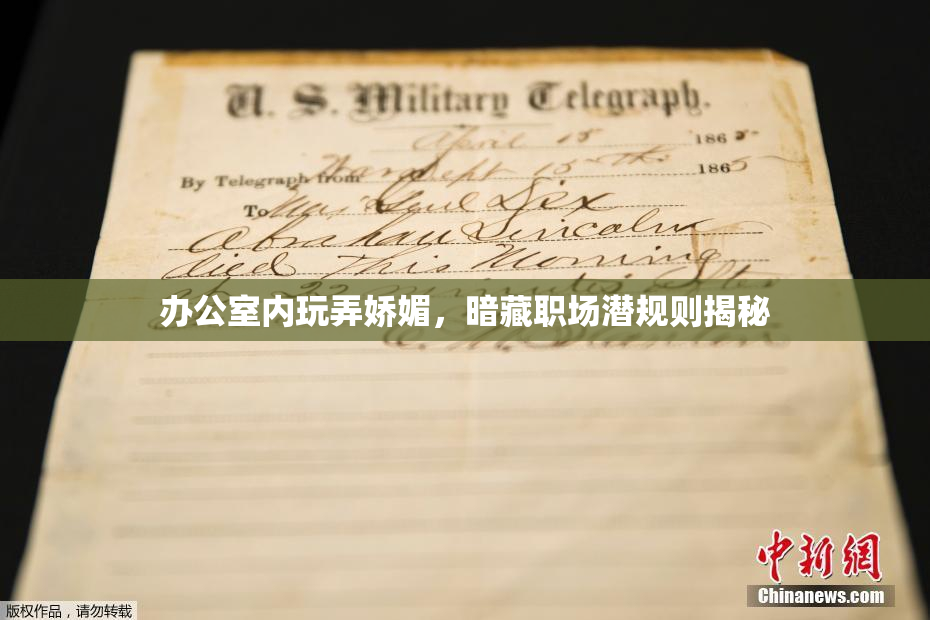 U. S. Military Telegraph.
April 15 1865
By Telegraph from War Dept 15th 1865
To Maj Genl Dix
Abraham Lincoln
died This Morning
at 22 minutes after
办公室内玩弄娇媚，暗藏职场潜规则揭秘
E. M. Stanton
中新网
Chinanews.com
版权作品，请勿转载